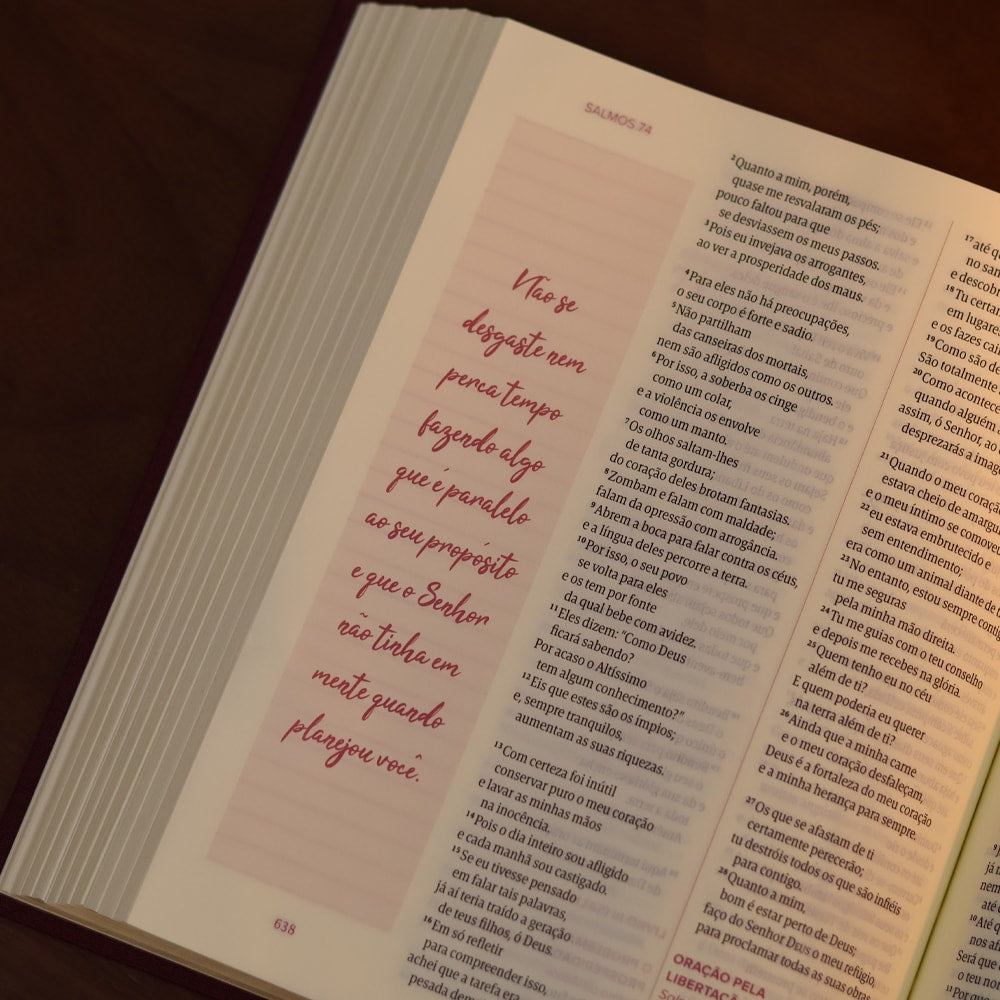 SALMOS 74
Não se
desgaste nem
perca tempo
fazendo algo
que é paralelo
ao seu propósito
e que o Senhor
não tinha em
mente quando
planejou você.
638
²Quanto a mim, porém,
quase me resvalaram os pés;
pouco faltou para que
se desviassem os meus passos.
³Pois eu invejava os arrogantes,
ao ver a prosperidade dos maus.
⁴Para eles não há preocupações,
o seu corpo é forte e sadio.
⁵Não partilham
das canseiras dos mortais,
nem são afligidos como os outros.
⁶Por isso, a soberba os cinge
como um colar,
e a violência os envolve
como um manto.
⁷Os olhos saltam-lhes
de tanta gordura;
do coração deles brotam fantasias.
⁸Zombam e falam com maldade;
falam da opressão com arrogância.
⁹Abrem a boca para falar contra os céus,
e a língua deles percorre a terra.
¹⁰Por isso, o seu povo
se volta para eles
e os tem por fonte
da qual bebe com avidez.
¹¹Eles dizem: “Como Deus
ficará sabendo?
Por acaso o Altíssimo
tem algum conhecimento?”
¹²Eis que estes são os ímpios;
e, sempre tranquilos,
aumentam as suas riquezas.
¹³Com certeza foi inútil
conservar puro o meu coração
e lavar as minhas mãos
na inocência.
¹⁴Pois o dia inteiro sou afligido
e cada manhã sou castigado.
¹⁵Se eu tivesse pensado
em falar tais palavras,
já aí teria traído a geração
de teus filhos, ó Deus.
¹⁶Em só refletir
para compreender isso,
achei que a tarefa era
pesada
¹⁷até
no
e
¹⁸Tu
em lugares
e os fazes
¹⁹Como são
São totalmente
²⁰Como acontece
quando alguém
assim, ó Senhor, ao
desprezarás a
²¹Quando o meu coração
estava cheio de
e o meu íntimo se
²²eu estava embrutecido e
sem entendimento;
era como um animal diante de
²³No entanto, estou sempre
tu me seguras
pela minha mão direita.
²⁴Tu me guias com o teu conselho
e depois me recebes na glória.
²⁵Quem tenho eu no céu
além de ti?
E quem poderia eu querer
na terra além de ti?
²⁶Ainda que a minha carne
e o meu coração desfaleçam,
Deus é a fortaleza do meu coração
e a minha herança para sempre.
²⁷Os que se afastam de ti
certamente perecerão;
tu destróis todos os que são infiéis
para contigo.
²⁸Quanto a mim,
bom é estar perto de Deus;
faço do Senhor Deus o meu refúgio,
para proclamar todas as suas obras.
ORAÇÃO PELA